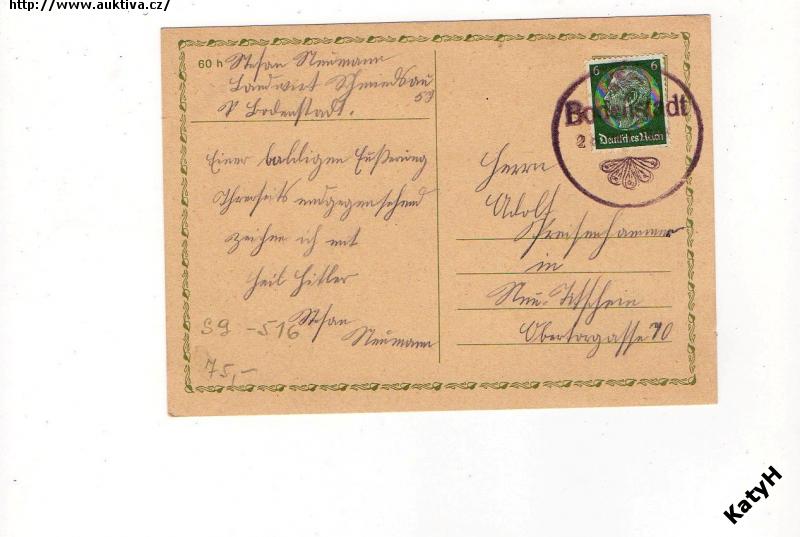 http://www.auktiva.cz/
60 h Stefan Neumann
Landwirt Schmiedsau
P Bodenstadt. 59
Einer baldigen Äußerung
Ihrerseits entgegensehend
zeichne ich mit
Heil Hitler
Stefan
Neumann
S9 -516
75,-
6 6
Deutsches Reich
Bodenstadt
2
Herrn
Adolf
Preisenhammer
in
Neu-Titschein
Obertorgasse
KatyH